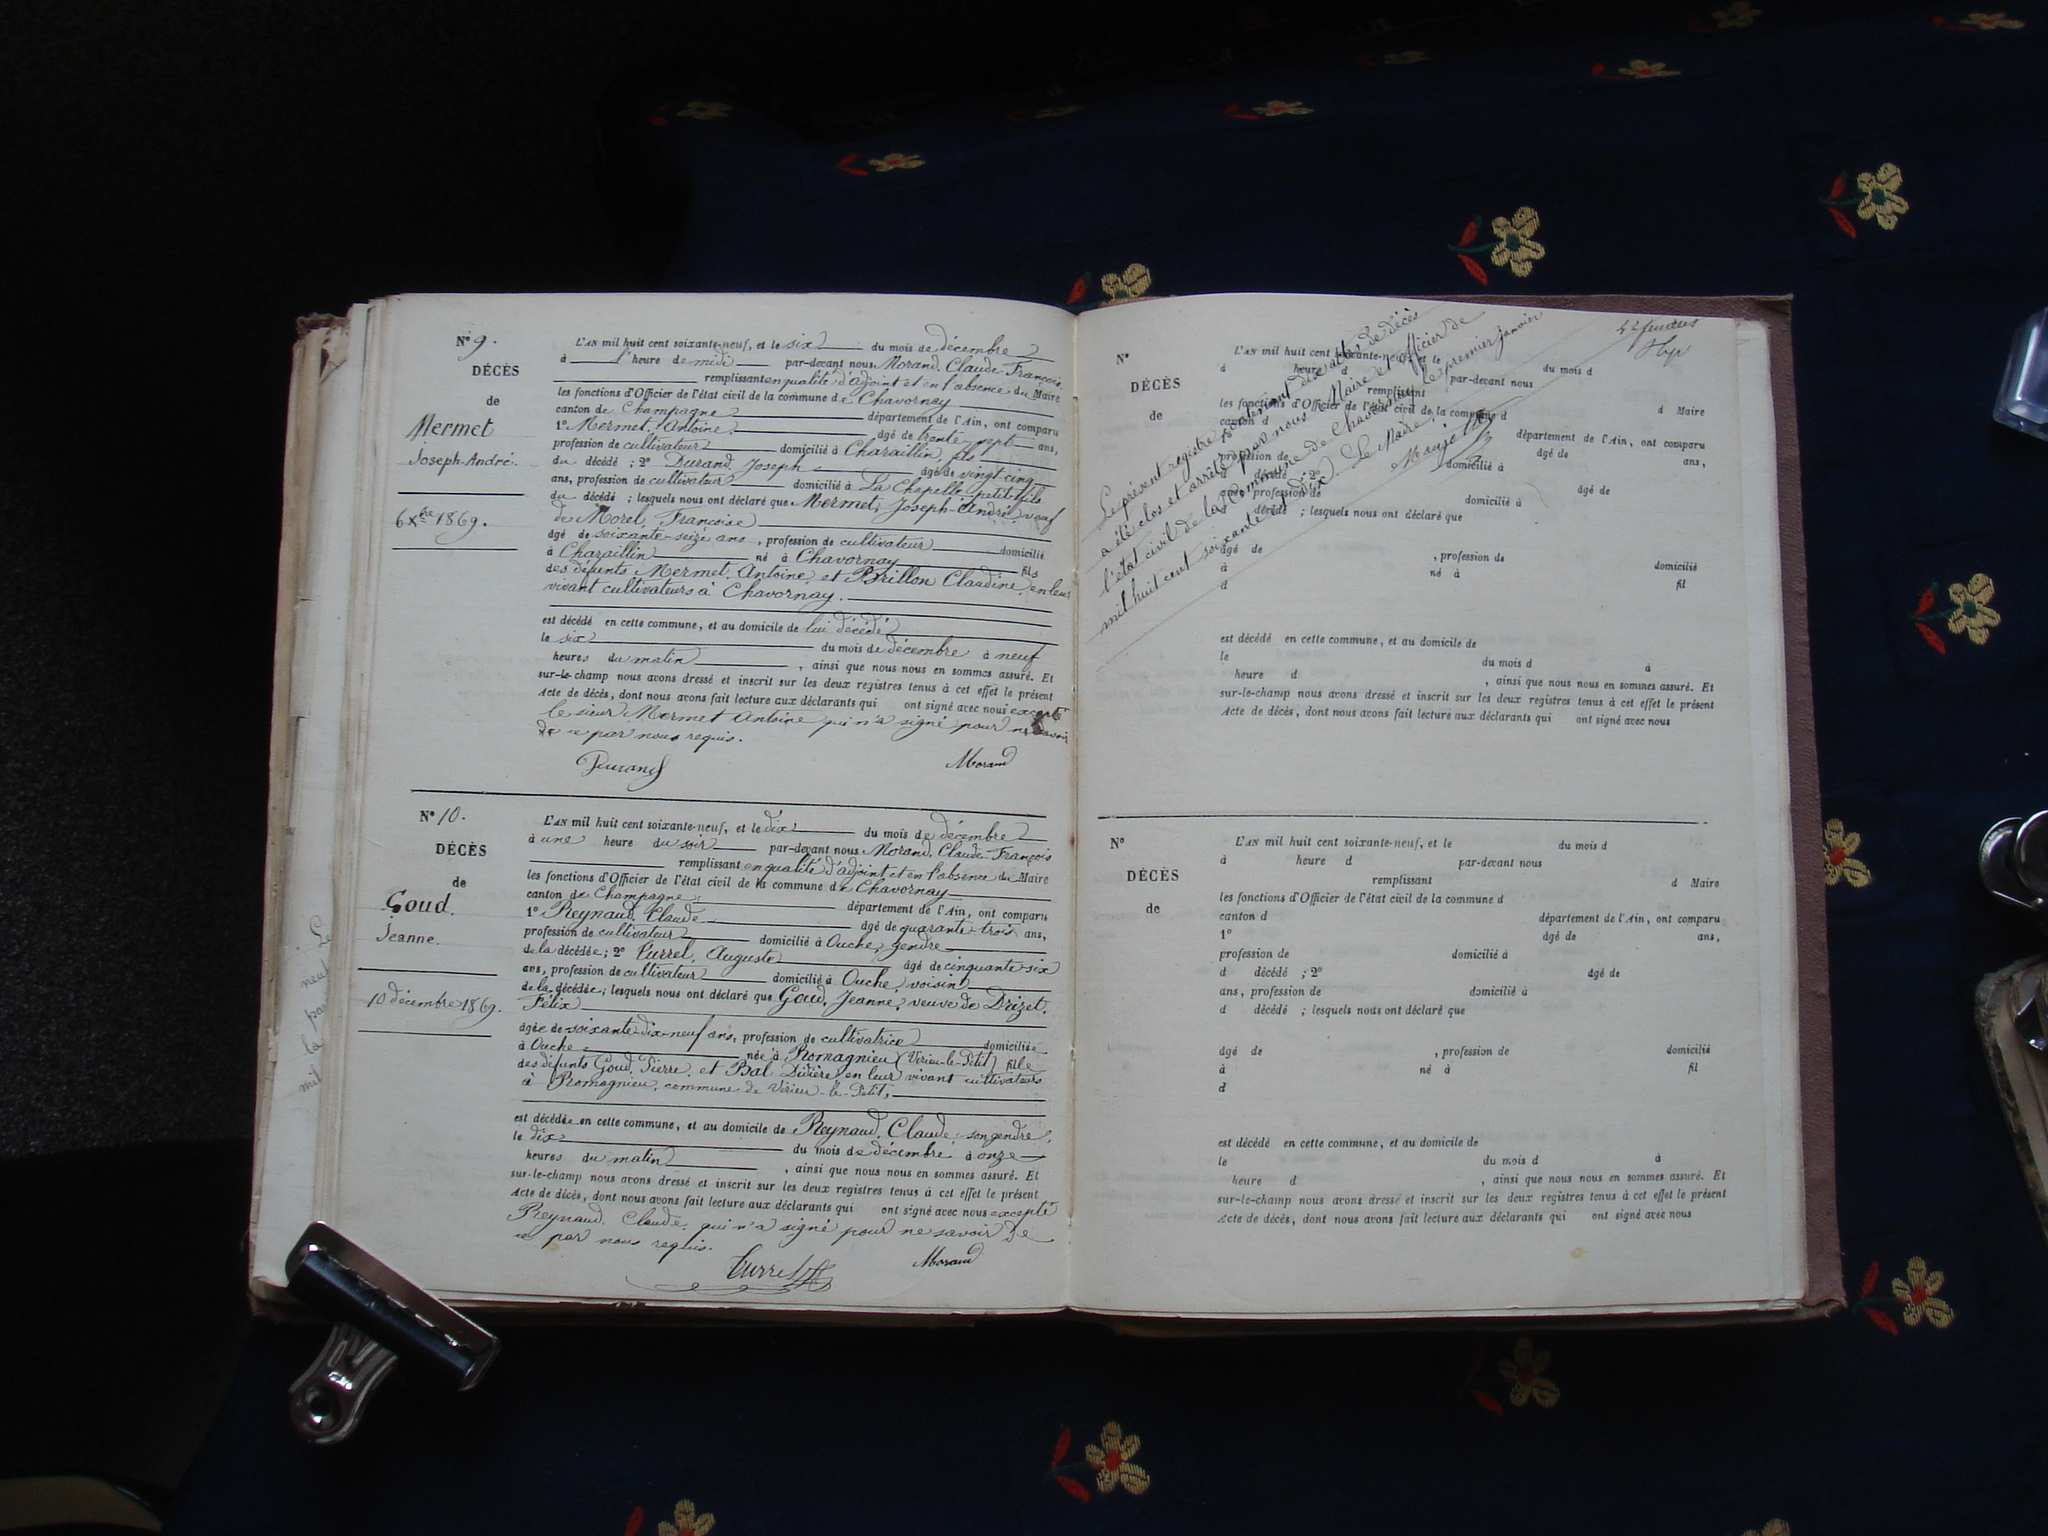 N° 9.
DÉCÈS
de
Mermet
Joseph-André.
6 Xbre 1869.
L'AN mil huit cent soixante-neuf, et le six du mois de décembre
à l'heure de midi par-devant nous Morand, Claude-François,
remplissant en qualité d'adjoint et en l'absence du Maire
les fonctions d'Officier de l'état civil de la commune de Chavornay
canton de Champagne département de l'Ain, ont comparu
1° Mermet, Antoine, âgé de trente-sept ans,
profession de cultivateur domicilié à Charaillin, fils
du décédé ; 2° Durand, Joseph âgé de vingt-cinq
ans, profession de cultivateur domicilié à La Chapelle, petit-fils
du décédé ; lesquels nous ont déclaré que Mermet, Joseph-André, veuf
de Morel, Françoise
âgé de soixante-seize ans, profession de cultivateur domicilié
à Charaillin né à Chavornay fils
des défunts Mermet, Antoine, et Brillon Claudine, en leur
vivant cultivateurs à Chavornay.
est décédé en cette commune, et au domicile de lui décédé
le six du mois de décembre à neuf
heures du matin , ainsi que nous nous en sommes assuré. Et
sur-le-champ nous avons dressé et inscrit sur les deux registres tenus à cet effet le présent
Acte de décès, dont nous avons fait lecture aux déclarants qui ont signé avec nous excepté
le sieur Mermet Antoine qui n'a signé pour ne savoir
de ce par nous requis.
Durand Morand
N° 10.
DÉCÈS
de
Goud.
Jeanne.
10 décembre 1869.
L'AN mil huit cent soixante-neuf, et le dix du mois de décembre
à une heure du soir par-devant nous Morand, Claude-François
remplissant en qualité d'adjoint et en l'absence du Maire
les fonctions d'Officier de l'état civil de la commune de Chavornay
canton de Champagne département de l'Ain, ont comparu
1° Reynaud, Claude âgé de quarante-trois ans,
profession de cultivateur domicilié à Ouche, gendre
de la décédée ; 2° Turrel, Auguste âgé de cinquante-six
ans, profession de cultivateur domicilié à Ouche, voisin
de la décédée ; lesquels nous ont déclaré que Goud, Jeanne, veuve de Drizet,
Félix
âgée de soixante-dix-neuf ans, profession de cultivatrice domiciliée
à Ouche née à Romagnieu (Virieu-le-Petit) fille
des défunts Goud, Pierre, et Bal Divière, en leur vivant cultivateurs
à Romagnieu, commune de Virieu-le-Petit,
est décédée en cette commune, et au domicile de Reynaud, Claude, son gendre,
le dix du mois de décembre à onze
heures du matin , ainsi que nous nous en sommes assuré. Et
sur-le-champ nous avons dressé et inscrit sur les deux registres tenus à cet effet le présent
Acte de décès, dont nous avons fait lecture aux déclarants qui ont signé avec nous excepté
Reynaud, Claude, qui n'a signé pour ne savoir de
ce par nous requis.
Turrel Morand
N°
DÉCÈS
de
L'AN mil huit cent soixante-neuf, et le du mois d
à heure d par-devant nous
remplissant d Maire
les fonctions d'Officier de l'état civil de la commune d
canton d département de l'Ain, ont comparu
âgé de ans,
profession de domicilié à
d décédé ; 2° âgé de
ans, profession de domicilié à
d décédé ; lesquels nous ont déclaré que
âgé de , profession de domicilié
à né à fil
d
est décédé en cette commune, et au domicile de
le du mois d à
heure d , ainsi que nous nous en sommes assuré. Et
sur-le-champ nous avons dressé et inscrit sur les deux registres tenus à cet effet le présent
Acte de décès, dont nous avons fait lecture aux déclarants qui ont signé avec nous
Le présent registre contenant dix actes de décès
a été clos et arrêté par nous Maire et officier de
l'état civil de la Commune de Chavornay le premier janvier
mil huit cent soixante et dix. Le Maire,
N°
DÉCÈS
de
L'AN mil huit cent soixante-neuf, et le du mois d
à heure d par-devant nous
remplissant d Maire
les fonctions d'Officier de l'état civil de la commune d
canton d département de l'Ain, ont comparu
1° âgé de ans,
profession de domicilié à
d décédé ; 2° âgé de
ans, profession de domicilié à
d décédé ; lesquels nous ont déclaré que
âgé de , profession de domicilié
à né à fil
d
est décédé en cette commune, et au domicile de
le du mois d à
heure d , ainsi que nous nous en sommes assuré. Et
sur-le-champ nous avons dressé et inscrit sur les deux registres tenus à cet effet le présent
Acte de décès, dont nous avons fait lecture aux déclarants qui ont signé avec nous